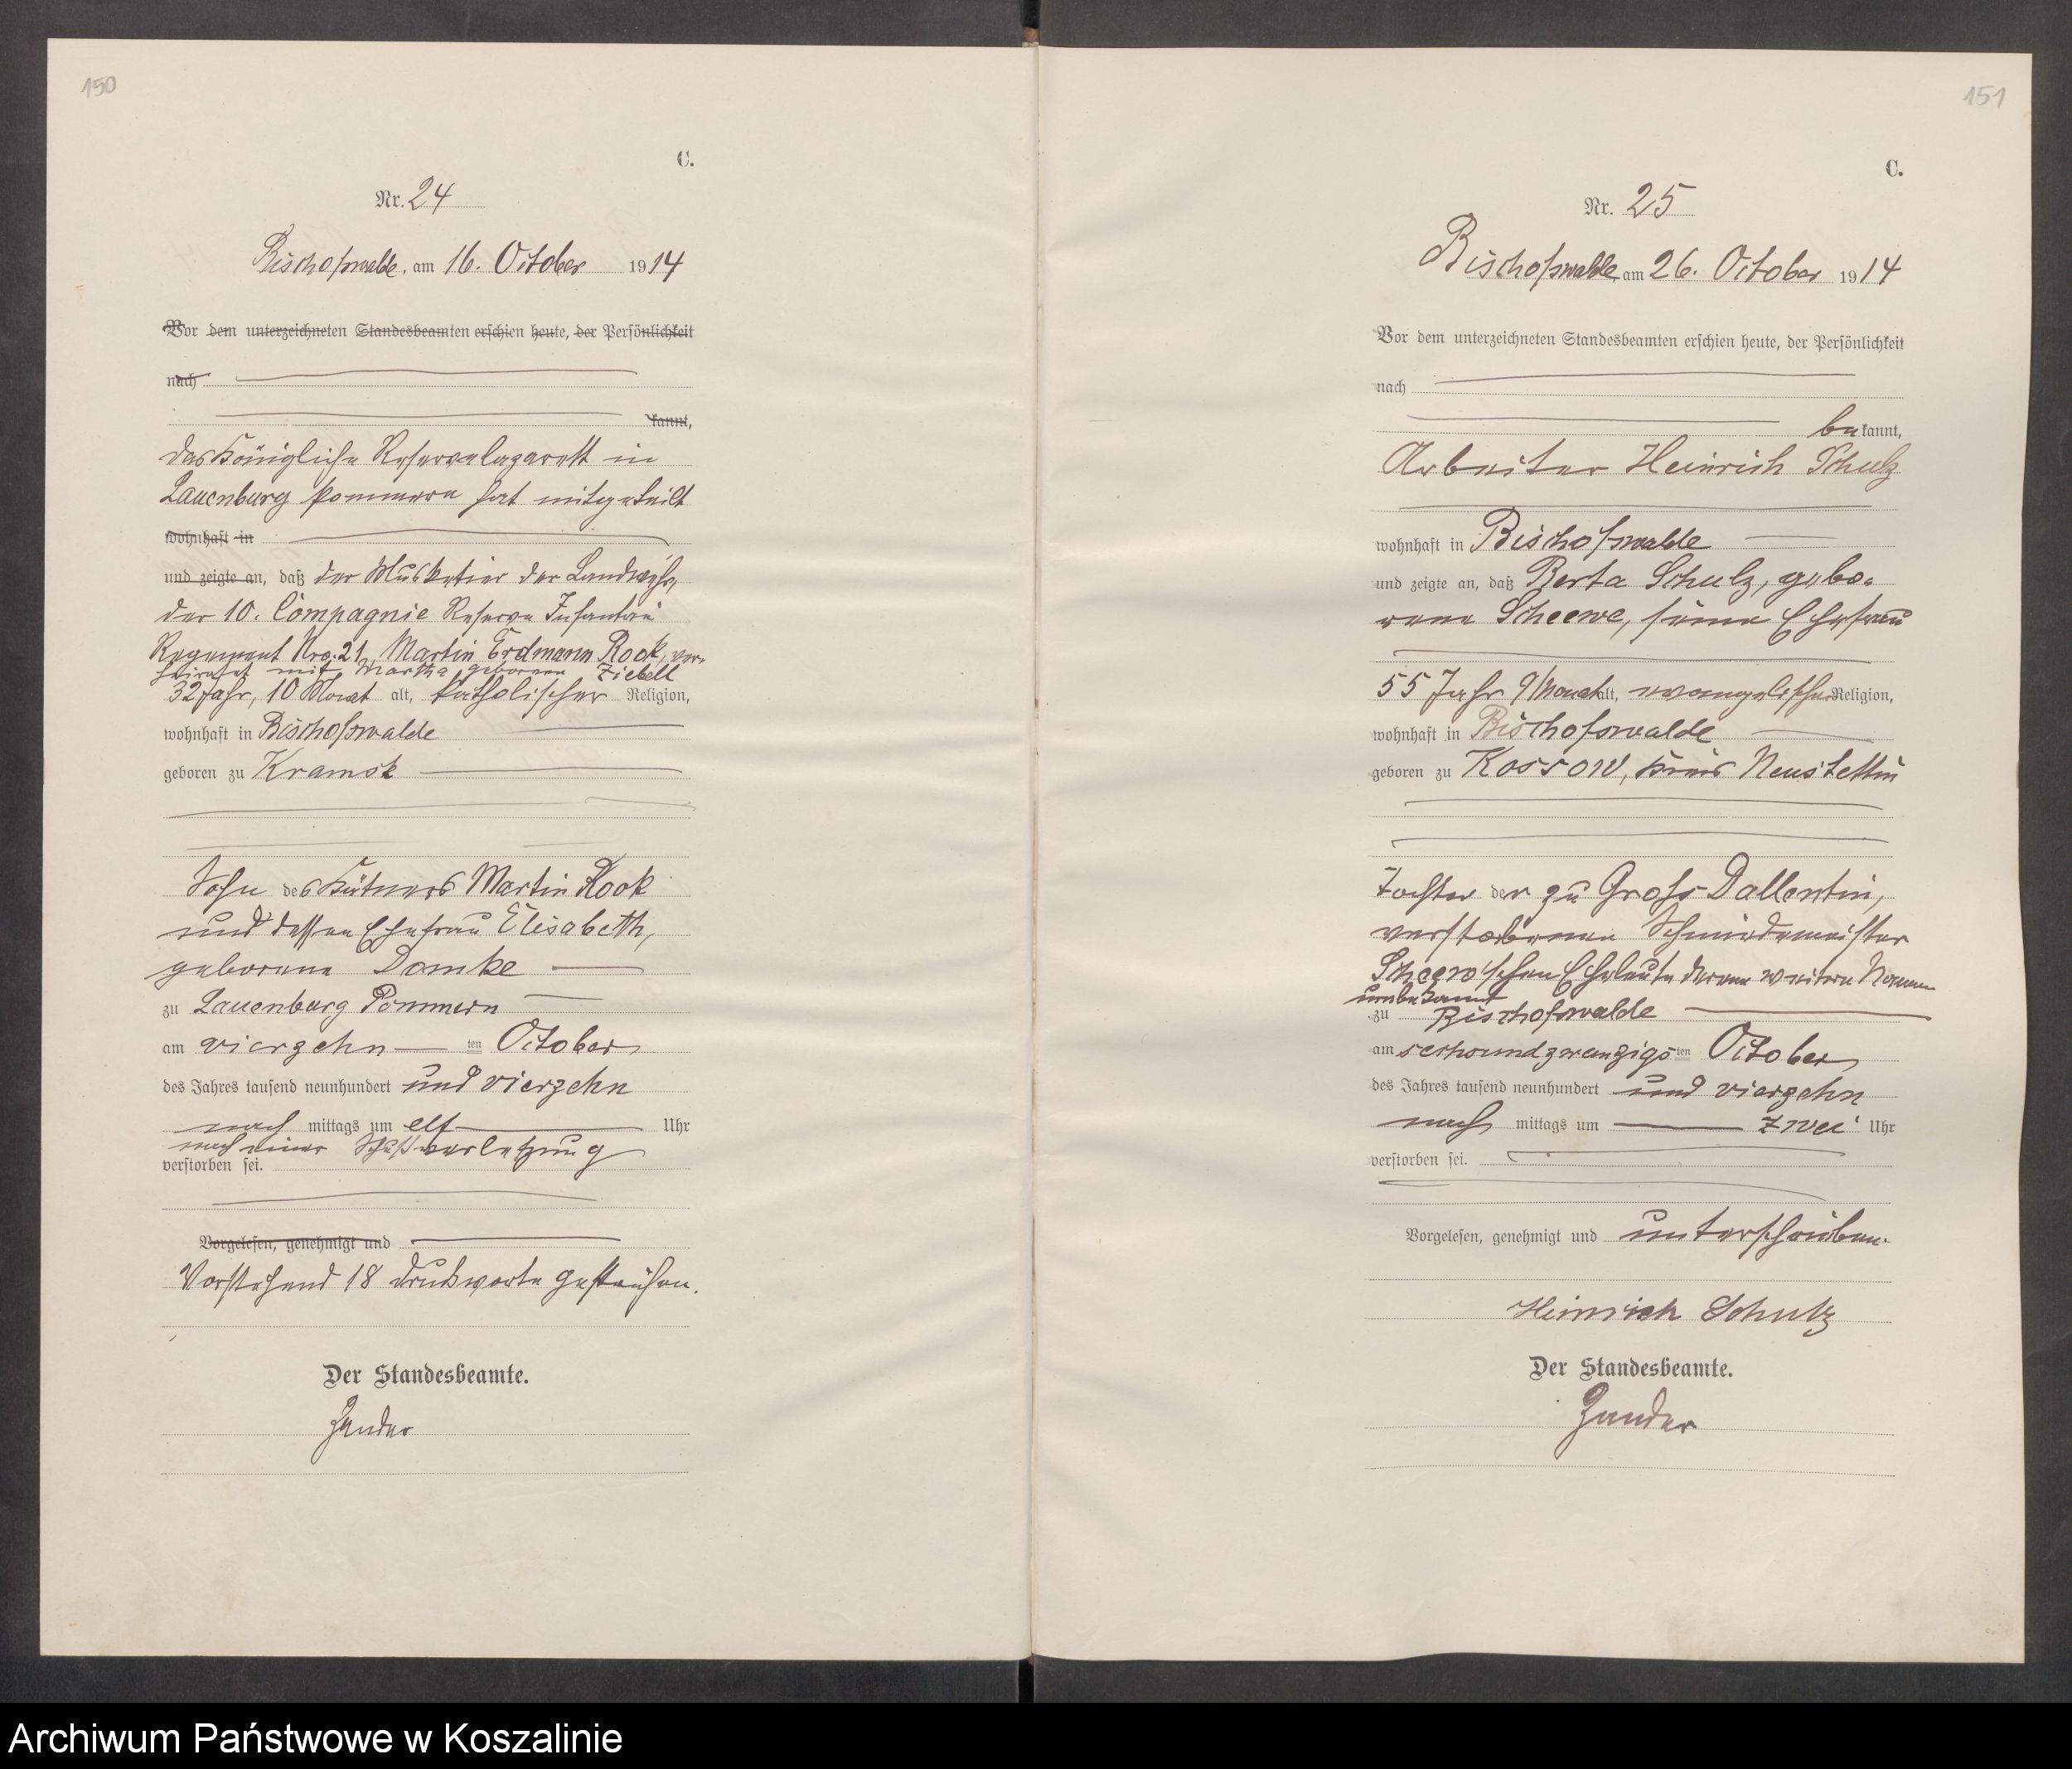 150
C.
Nr. 24
Bischofswalde, am 16. October 1914
Vor dem unterzeichneten Standesbeamten erschien heute, der Persönlichkeit
nach
kannt,
das Königliche Reservelazarett in
Lauenburg Pommern hat mitgeteilt
wohnhaft in
und zeigte an, daß der Musketier der Landwehr,
der 10. Compagnie Reserve Infanterie
Regiment Nro. 21, Martin Erdmann Rook, ver-
heiratet mit Martha geborenen Ziebell
32 Jahr, 10 Monat alt, katholischer Religion,
wohnhaft in Bischofswalde
geboren zu Kramsk
Sohn des Kätners Martin Rook
und dessen Ehefrau Elisabeth,
geborene Domke
zu Lauenburg Pommern
am vierzehn ten October
des Jahres tausend neunhundert und vierzehn
nach mittags um elf Uhr
nach einer Schußverletzung
verstorben sei.
Vorgelesen, genehmigt und
Vorstehend 18 Druckworte gestrichen.
Der Standesbeamte.
Zander
151
C.
Nr. 25
Bischofswalde, am 26. October 1914
Vor dem unterzeichneten Standesbeamten erschien heute, der Persönlichkeit
nach
bekannt,
Arbeiter Heinrich Schulz
wohnhaft in Bischofswalde
und zeigte an, daß Berta Schulz, gebo-
rene Scheewe, seine Ehefrau
55 Jahr 9 Monat alt, evangelischer Religion,
wohnhaft in Bischofswalde
geboren zu Kossow, Kreis Neustettin
Tochter der zu Groß Dallentin,
verstorbenen Schmiedemeister
Scheew'schen Eheleute deren weitere Namen
unbekannt
zu Bischofswalde
am sechsundzwanzigsten October
des Jahres tausend neunhundert und vierzehn
nach mittags um zwei Uhr
verstorben sei.
Vorgelesen, genehmigt und unterschrieben.
Heinrich Schulz
Der Standesbeamte.
Zander
Archiwum Państwowe w Koszalinie